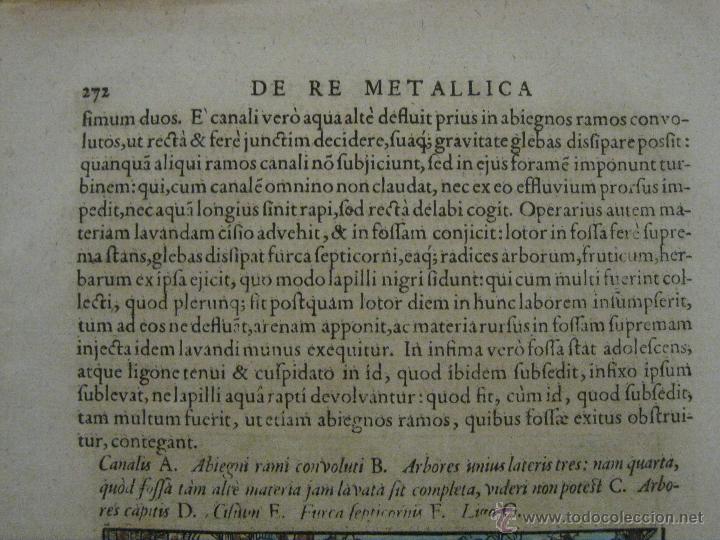 272 DE RE METALLICA
ſimum duos. E' canali verò aqua altè defluit prius in abiegnos ramos convo-
lutos, ut rectà & ferè junctim decidere, ſuaq; gravitate glebas diſſipare poſſit:
quanquã aliqui ramos canali nõ ſubjiciunt, ſed in ejus foramẽ imponunt tur-
binem: qui, cum canalẽ omnino non claudat, nec ex eo effluvium prorſus im-
pedit, nec aquã longius ſinit rapi, ſed rectà delabi cogit. Operarius autem ma-
teriam lavandam ciſio advehit, & in foſſam conjicit: lotor in foſſa ferè ſupre-
ma ſtans, glebas diſſipat furca ſepticorni, eaq; radices arborum, fruticum, her-
barum ex ipſa ejicit, quo modo lapilli nigri ſidunt: qui cum multi fuerint col-
lecti, quod plerunq; fit poſtquam lotor diem in hunc laborem inſumpſerit,
tum ad eos ne defluãt, arenam apponit, ac materia rurſus in foſſam ſupremam
injecta idem lavandi munus exequitur. In infima verò foſſa ſtat adoleſcens,
atque ligone tenui & cuſpidato in id, quod ibidem ſubſedit, infixo ipſum
ſublevat, ne lapilli aquâ rapti devolvantur: quod fit, cùm id, quod ſubſedit,
tam multum fuerit, ut etiam abiegnos ramos, quibus foſſæ exitus obſtrui-
tur, contegant.
Canalis A. Abiegni rami convoluti B. Arbores unius lateris tres: nam quarta,
quòd foſſa tàm altè materia jam lavatâ ſit completa, videri non poteſt C. Arbo-
res capitis D. Ciſium E. Furca ſepticornis F. Ligo G.
© www.todocoleccion.net